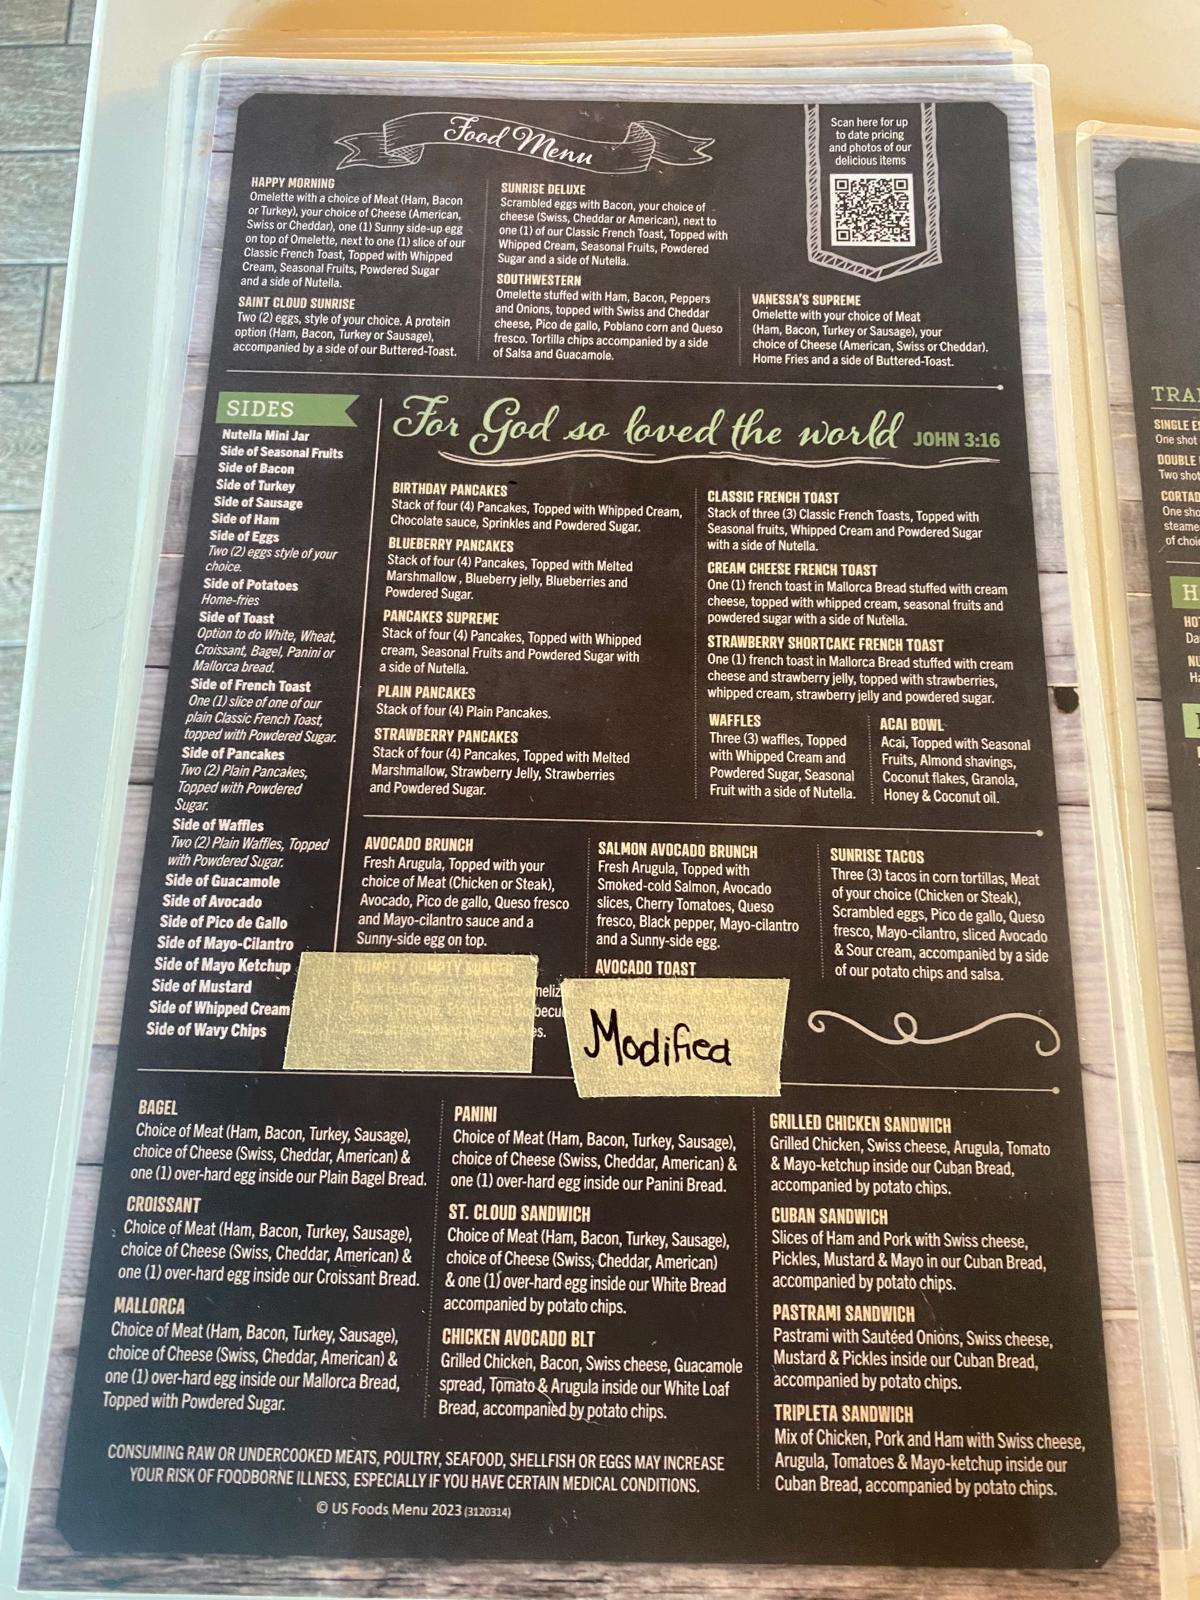 Food Menu
Scan here for up
to date pricing
and photos of our
delicious items
HAPPY MORNING
Omelette with a choice of Meat (Ham, Bacon
or Turkey), your choice of Cheese (American,
Swiss or Cheddar), one (1) Sunny side-up egg
on top of Omelette, next to one (1) slice of our
Classic French Toast, Topped with Whipped
Cream, Seasonal Fruits, Powdered Sugar
and a side of Nutella.
SAINT CLOUD SUNRISE
Two (2) eggs, style of your choice. A protein
option (Ham, Bacon, Turkey or Sausage),
accompanied by a side of our Buttered-Toast.
SUNRISE DELUXE
Scrambled eggs with Bacon, your choice of
cheese (Swiss, Cheddar or American), next to
one (1) of our Classic French Toast, Topped with
Whipped Cream, Seasonal Fruits, Powdered
Sugar and a side of Nutella.
SOUTHWESTERN
Omelette stuffed with Ham, Bacon, Peppers
and Onions, topped with Swiss and Cheddar
cheese, Pico de gallo, Poblano corn and Queso
fresco. Tortilla chips accompanied by a side
of Salsa and Guacamole.
VANESSA'S SUPREME
Omelette with your choice of Meat
(Ham, Bacon, Turkey or Sausage), your
choice of Cheese (American, Swiss or Cheddar).
Home Fries and a side of Buttered-Toast.
SIDES
Nutella Mini Jar
Side of Seasonal Fruits
Side of Bacon
Side of Turkey
Side of Sausage
Side of Ham
Side of Eggs
Two (2) eggs style of your
choice.
Side of Potatoes
Home-fries
Side of Toast
Option to do White, Wheat,
Croissant, Bagel, Panini or
Mallorca bread.
Side of French Toast
One (1) slice of one of our
plain Classic French Toast,
topped with Powdered Sugar.
Side of Pancakes
Two (2) Plain Pancakes,
Topped with Powdered
Sugar.
Side of Waffles
Two (2) Plain Waffles, Topped
with Powdered Sugar.
Side of Guacamole
Side of Avocado
Side of Pico de Gallo
Side of Mayo-Cilantro
Side of Mayo Ketchup
Side of Mustard
Side of Whipped Cream
Side of Wavy Chips
For God so loved the world JOHN 3:16
BIRTHDAY PANCAKES
Stack of four (4) Pancakes, Topped with Whipped Cream,
Chocolate sauce, Sprinkles and Powdered Sugar.
BLUEBERRY PANCAKES
Stack of four (4) Pancakes, Topped with Melted
Marshmallow , Blueberry jelly, Blueberries and
Powdered Sugar.
PANCAKES SUPREME
Stack of four (4) Pancakes, Topped with Whipped
cream, Seasonal Fruits and Powdered Sugar with
a side of Nutella.
PLAIN PANCAKES
Stack of four (4) Plain Pancakes.
STRAWBERRY PANCAKES
Stack of four (4) Pancakes, Topped with Melted
Marshmallow, Strawberry Jelly, Strawberries
and Powdered Sugar.
CLASSIC FRENCH TOAST
Stack of three (3) Classic French Toasts, Topped with
Seasonal fruits, Whipped Cream and Powdered Sugar
with a side of Nutella.
CREAM CHEESE FRENCH TOAST
One (1) french toast in Mallorca Bread stuffed with cream
cheese, topped with whipped cream, seasonal fruits and
powdered sugar with a side of Nutella.
STRAWBERRY SHORTCAKE FRENCH TOAST
One (1) french toast in Mallorca Bread stuffed with cream
cheese and strawberry jelly, topped with strawberries,
whipped cream, strawberry jelly and powdered sugar.
WAFFLES
Three (3) waffles, Topped
with Whipped Cream and
Powdered Sugar, Seasonal
Fruit with a side of Nutella.
ACAI BOWL
Acai, Topped with Seasonal
Fruits, Almond shavings,
Coconut flakes, Granola,
Honey & Coconut oil.
AVOCADO BRUNCH
Fresh Arugula, Topped with your
choice of Meat (Chicken or Steak),
Avocado, Pico de gallo, Queso fresco
and Mayo-cilantro sauce and a
Sunny-side egg on top.
HUMPTY DUMPTY BURGER
SALMON AVOCADO BRUNCH
Fresh Arugula, Topped with
Smoked-cold Salmon, Avocado
slices, Cherry Tomatoes, Queso
fresco, Black pepper, Mayo-cilantro
and a Sunny-side egg.
AVOCADO TOAST
Modified
SUNRISE TACOS
Three (3) tacos in corn tortillas, Meat
of your choice (Chicken or Steak),
Scrambled eggs, Pico de gallo, Queso
fresco, Mayo-cilantro, sliced Avocado
& Sour cream, accompanied by a side
of our potato chips and salsa.
BAGEL
Choice of Meat (Ham, Bacon, Turkey, Sausage),
choice of Cheese (Swiss, Cheddar, American) &
one (1) over-hard egg inside our Plain Bagel Bread.
CROISSANT
Choice of Meat (Ham, Bacon, Turkey, Sausage),
choice of Cheese (Swiss, Cheddar, American) &
one (1) over-hard egg inside our Croissant Bread.
MALLORCA
Choice of Meat (Ham, Bacon, Turkey, Sausage),
choice of Cheese (Swiss, Cheddar, American) &
one (1) over-hard egg inside our Mallorca Bread,
Topped with Powdered Sugar.
PANINI
Choice of Meat (Ham, Bacon, Turkey, Sausage),
choice of Cheese (Swiss, Cheddar, American) &
one (1) over-hard egg inside our Panini Bread.
ST. CLOUD SANDWICH
Choice of Meat (Ham, Bacon, Turkey, Sausage),
choice of Cheese (Swiss, Cheddar, American)
& one (1) over-hard egg inside our White Bread
accompanied by potato chips.
CHICKEN AVOCADO BLT
Grilled Chicken, Bacon, Swiss cheese, Guacamole
spread, Tomato & Arugula inside our White Loaf
Bread, accompanied by potato chips.
GRILLED CHICKEN SANDWICH
Grilled Chicken, Swiss cheese, Arugula, Tomato
& Mayo-ketchup inside our Cuban Bread,
accompanied by potato chips.
CUBAN SANDWICH
Slices of Ham and Pork with Swiss cheese,
Pickles, Mustard & Mayo in our Cuban Bread,
accompanied by potato chips.
PASTRAMI SANDWICH
Pastrami with Sautéed Onions, Swiss cheese,
Mustard & Pickles inside our Cuban Bread,
accompanied by potato chips.
TRIPLETA SANDWICH
Mix of Chicken, Pork and Ham with Swiss cheese,
Arugula, Tomatoes & Mayo-ketchup inside our
Cuban Bread, accompanied by potato chips.
CONSUMING RAW OR UNDERCOOKED MEATS, POULTRY, SEAFOOD, SHELLFISH OR EGGS MAY INCREASE
YOUR RISK OF FOODBORNE ILLNESS, ESPECIALLY IF YOU HAVE CERTAIN MEDICAL CONDITIONS.
© US Foods Menu 2023 (3120314)
One shot
DOUBLE
Two shot
of choi